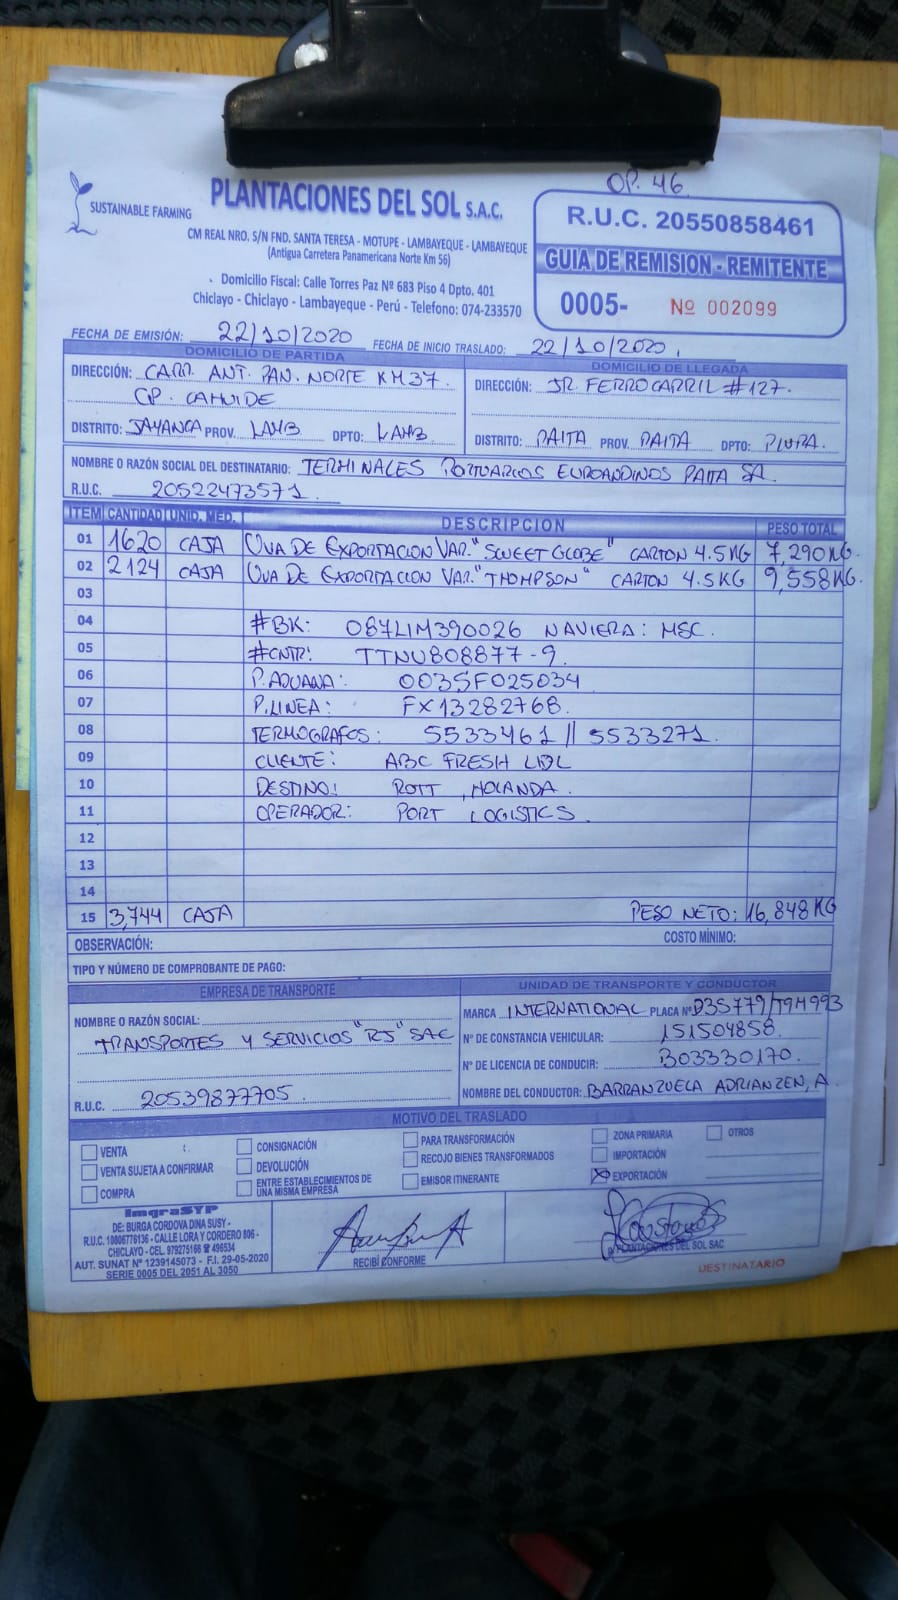 OP. 46
SUSTAINABLE FARMING
PLANTACIONES DEL SOL S.A.C.
CM REAL NRO. S/N FND. SANTA TERESA - MOTUPE - LAMBAYEQUE - LAMBAYEQUE
(Antigua Carretera Panamericana Norte Km 56)
Domicilio Fiscal: Calle Torres Paz Nº 683 Piso 4 Dpto. 401
Chiclayo - Chiclayo - Lambayeque - Perú - Telefono: 074-233570
R.U.C. 20550858461
GUIA DE REMISION - REMITENTE
0005- Nº 002099
FECHA DE EMISIÓN: 22/10/2020 FECHA DE INICIO TRASLADO: 22/10/2020
DOMICILIO DE PARTIDA
DIRECCIÓN: CARR. ANT. PAN. NORTE KM 37.
CP. CAHUIDE
DISTRITO: JAYANCA PROV. LAMB DPTO: LAMB
DOMICILIO DE LLEGADA
DIRECCIÓN: JR. FERROCARRIL #127.
DISTRITO: PAITA PROV. PAITA DPTO: PIURA.
NOMBRE O RAZÓN SOCIAL DEL DESTINATARIO: TERMINALES PORTUARIOS EUROANDINOS PAITA SA
R.U.C. 20522473571.
ITEM CANTIDAD UNID. MED. DESCRIPCION PESO TOTAL
01 1620 CAJA UVA DE EXPORTACION VAR. "SWEET GLOBE" CARTON 4.5KG 7,290KG.
02 2124 CAJA UVA DE EXPORTACION VAR. "THOMPSON" CARTON 4.5KG 9,558KG.
03
04 #BK: 087LIM390026 NAVIERA: MSC.
05 #CNTR: TTNU808877-9.
06 P.ADUANA: 0035F025034
07 P.LINEA: FX13282768.
08 TERMOGRAFOS: 5533461 // 5533271.
09 CLIENTE: ABC FRESH LIDL
10 DESTINO: ROTT, HOLANDA.
11 OPERADOR: PORT LOGISTICS.
12
13
14
15 3,744 CAJA PESO NETO: 16,848KG
OBSERVACIÓN: COSTO MÍNIMO:
TIPO Y NÚMERO DE COMPROBANTE DE PAGO:
EMPRESA DE TRANSPORTE
NOMBRE O RAZÓN SOCIAL:
TRANSPORTES Y SERVICIOS "RJ" SAC
R.U.C. 20539877705.
UNIDAD DE TRANSPORTE Y CONDUCTOR
MARCA INTERNATIONAL PLACA Nº D3S779/T9M993
Nº DE CONSTANCIA VEHICULAR: 151504858.
Nº DE LICENCIA DE CONDUCIR: B03330170.
NOMBRE DEL CONDUCTOR: BARRANZUELA ADRIANZEN, A.
MOTIVO DEL TRASLADO
VENTA CONSIGNACIÓN PARA TRANSFORMACIÓN ZONA PRIMARIA OTROS
VENTA SUJETA A CONFIRMAR DEVOLUCIÓN RECOJO BIENES TRANSFORMADOS IMPORTACIÓN
COMPRA ENTRE ESTABLECIMIENTOS DE UNA MISMA EMPRESA EMISOR ITINERANTE EXPORTACIÓN
ImgraSYP
DE: BURGA CORDOVA DINA SUSY -
R.U.C. 10806776136 - CALLE LORA Y CORDERO 806 -
CHICLAYO - CEL. 979275166 ☎ 496534
AUT. SUNAT Nº 1239145073 - F.I. 29-05-2020
SERIE 0005 DEL 2051 AL 3050
RECIBÍ CONFORME
PLANTACIONES DEL SOL SAC
DESTINATARIO